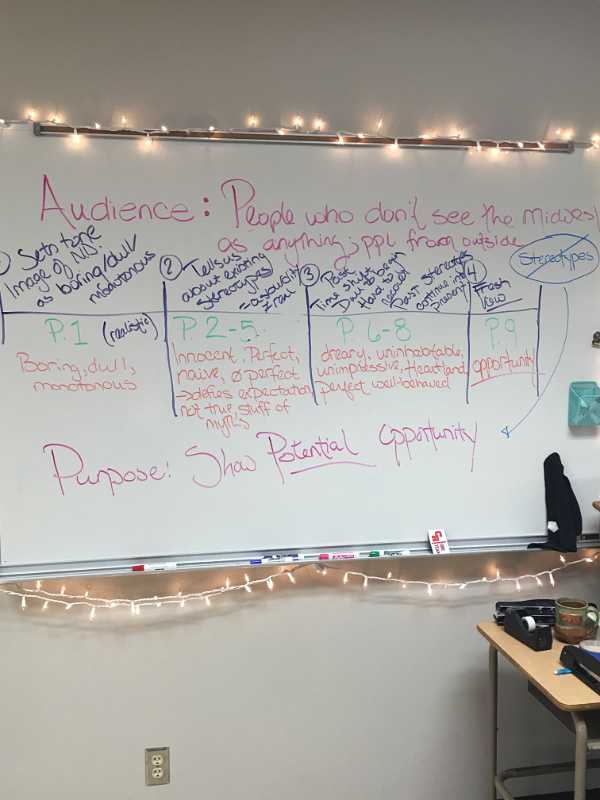 Audience: People who don't see the Midwest
as anything; ppl from outside
Stereotypes
Sets tone
Image of
as boring/dull/
monotonous
② Tells us
about existing
stereotypes
③ Past
Time shift
Dust
Hard to
Past stereotypes
continue into
present
4
Fresh
P.1 (realistic)
Boring, dull,
monotonous
P. 2-5
Innocent, Perfect,
naive, ø perfect
→ defies expectation
not true, stuff of
myths
P. 6-8
dreary, uninhabitable,
unimpressive, Heartland,
perfect well-behaved
P.9
opportunity
Purpose: Show Potential opportunity